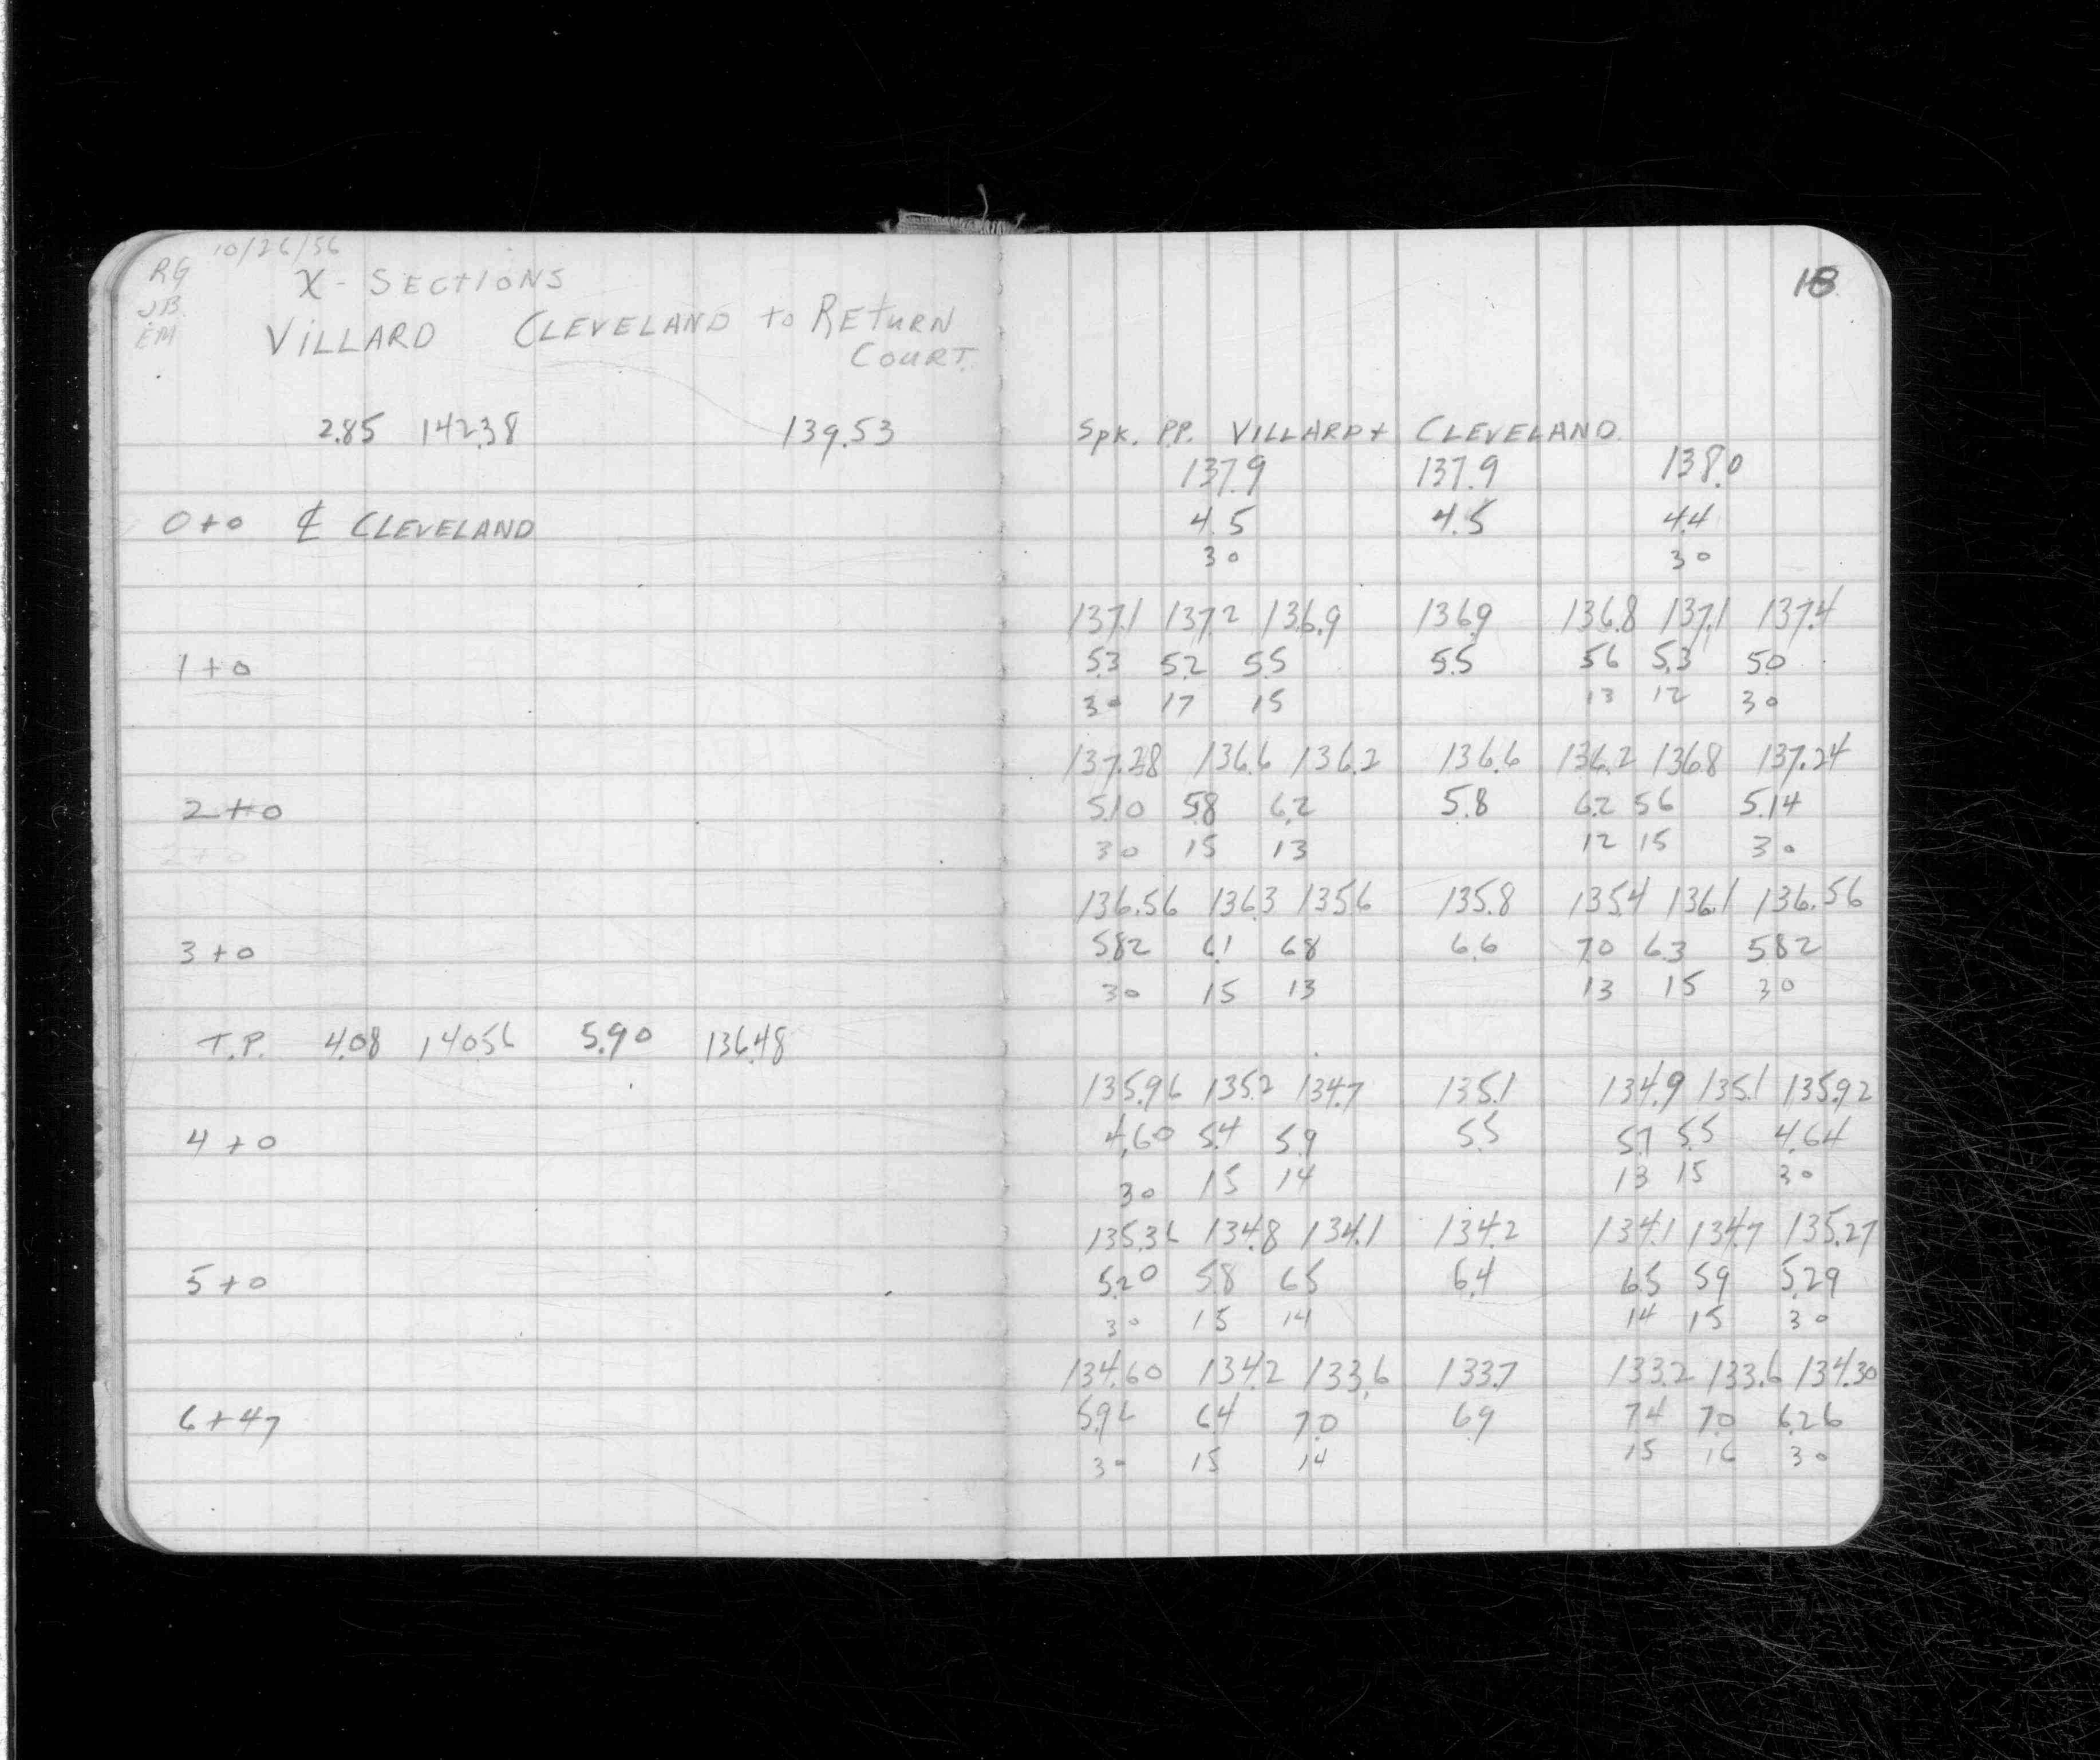 10/26/56
RG
JB.
EM
X - SECTIONS
VILLARD CLEVELAND to RETURN
COURT.
2.85 142.38 139.53
0+0 ℄ CLEVELAND
1+0
2+0
2+0
3+0
T.P. 4.08 140.56 5.90 136.48
4+0
5+0
6+47
18
Spk. PP. VILLARD + CLEVELAND
137.9 137.9 138.0
4.5 4.5 4.4
30 30
137.1 137.2 136.9 136.9 136.8 137.1 137.4
5.3 5.2 5.5 5.5 5.6 5.3 5.0
30 17 15 13 12 30
137.28 136.6 136.2 136.6 136.2 136.8 137.24
5.10 5.8 6.2 5.8 6.2 5.6 5.14
30 15 13 12 15 30
136.56 136.3 135.6 135.8 135.4 136.1 136.56
5.82 6.1 6.8 6.6 7.0 6.3 5.82
30 15 13 13 15 30
135.96 135.2 134.7 135.1 134.9 135.1 135.92
4.60 5.4 5.9 5.5 5.7 5.5 4.64
30 15 14 13 15 30
135.36 134.8 134.1 134.2 134.1 134.7 135.27
5.20 5.8 6.5 6.4 6.5 5.9 5.29
30 15 14 14 15 30
134.60 134.2 133.6 133.7 133.2 133.6 134.30
5.96 6.4 7.0 6.9 7.4 7.0 6.26
30 15 14 15 16 30